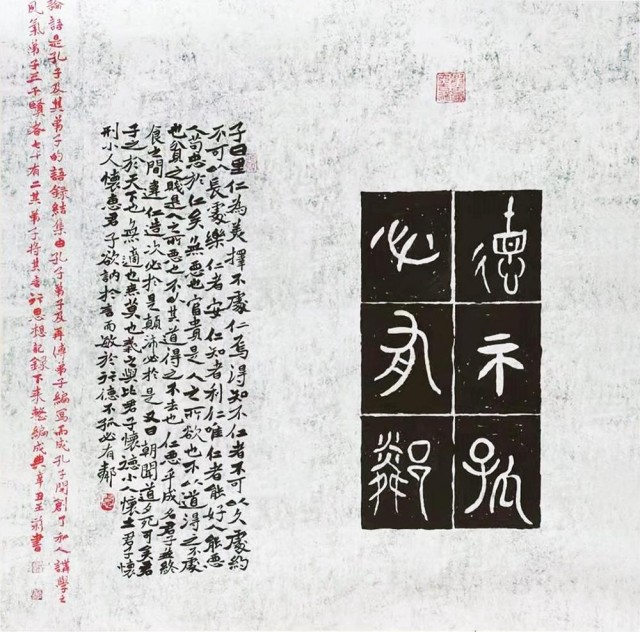 德不孤
必有鄰
子曰里仁為美擇不處仁焉得知不仁者不可以久處約
不可以長處樂仁者安仁知者利仁唯仁者能好人能惡
人苟志於仁矣無惡也富貴是人之所欲也不以道得之不處
也貧與賤是人之所惡也不以其道得之不去也仁惡乎成名君子無終
食之間違仁造次必於是顛沛必於是又曰朝聞道夕死可矣君
子之於天下也無適也無莫也義之與比君子懷德小人懷土君子懷
刑小人懷惠君子欲訥於言而敏於行德不孤必有鄰
論語是孔子及其弟子的語錄結集由孔子弟子及再傳弟子編寫而成孔子開創了私人講學之
風氣弟子三千賢者七十有二其弟子將其言行思想記錄下來整編成典辛丑王書